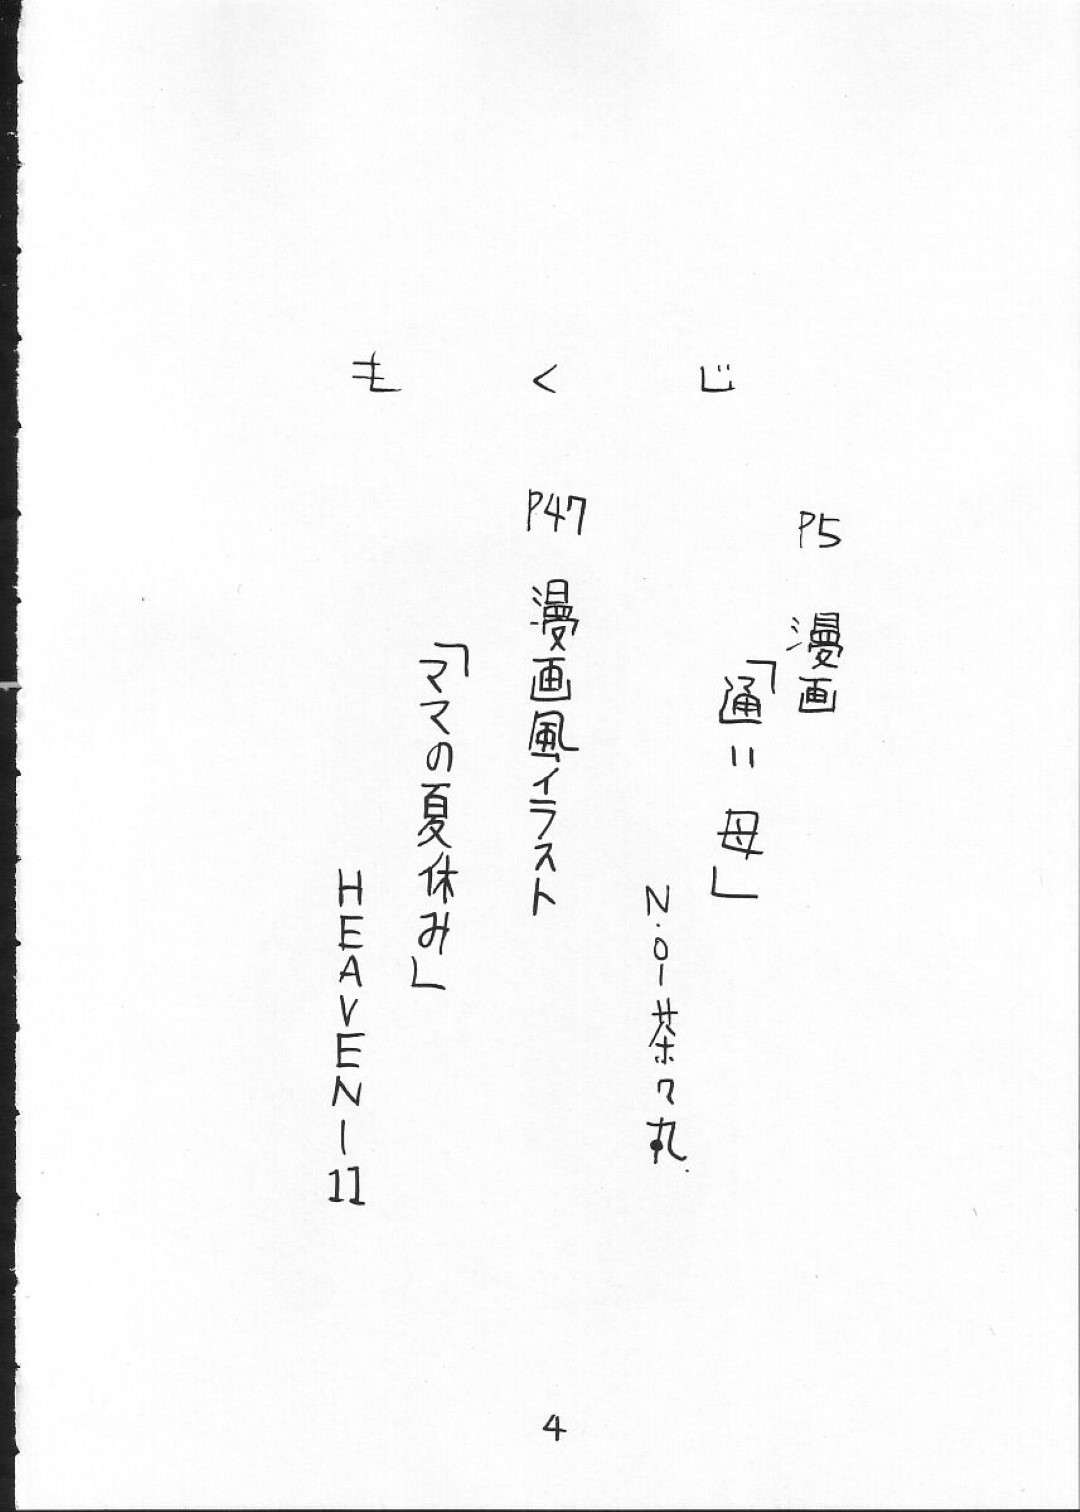 もくじ
P5 漫画
「通い母」
N.O-茶々丸
P47 漫画風イラスト
「ママの夏休み」
HEAVEN-11
4